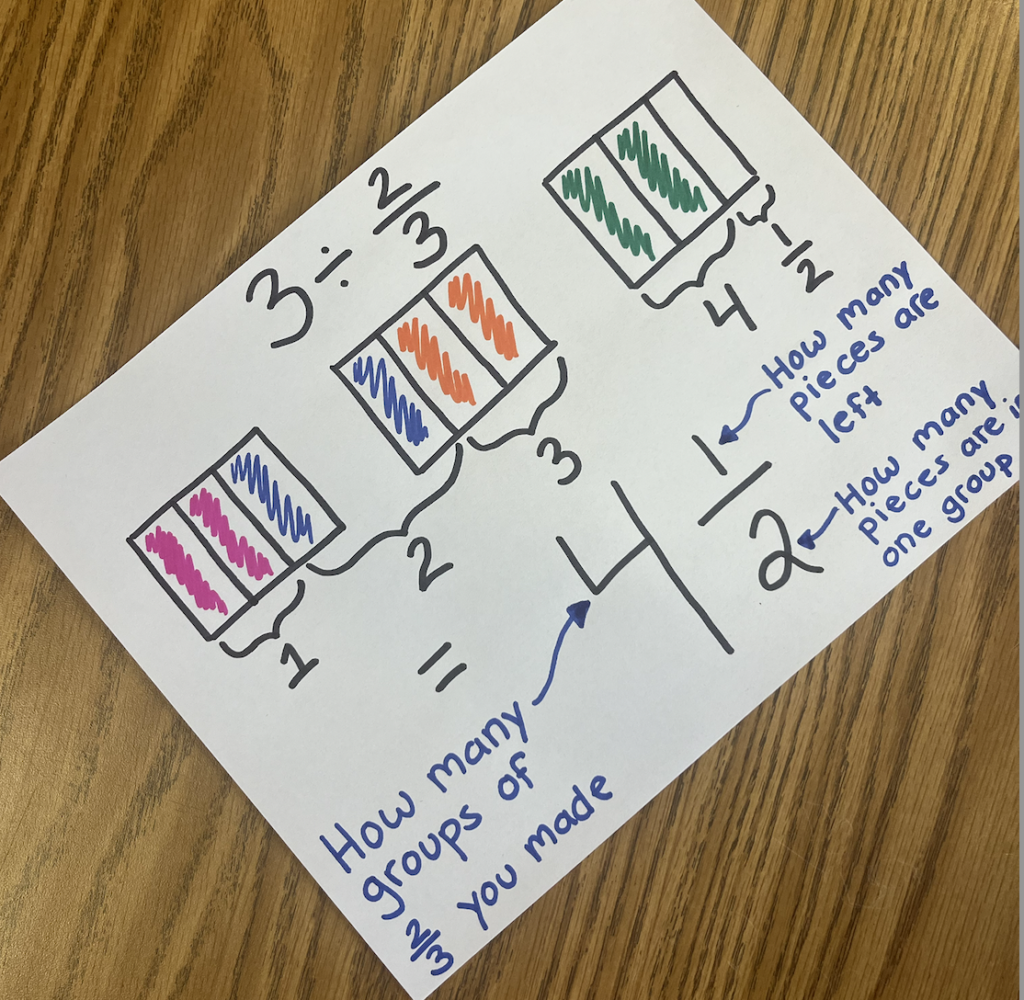 3 ÷ 2/3
1
2
3
4
1/2
= 4 1/2
How many
pieces are
left
How many
pieces are
one group
How many
groups of
2/3 you made